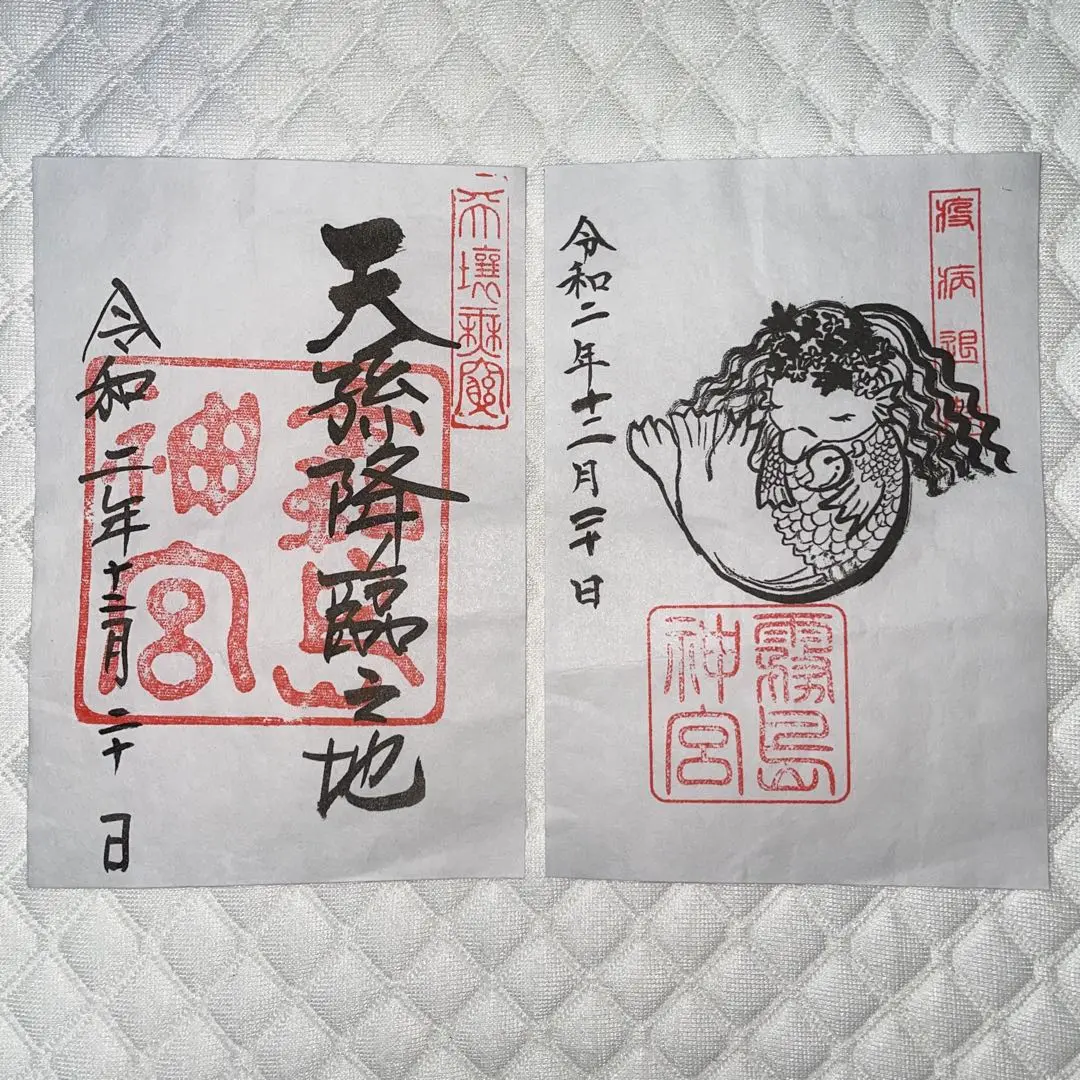 天壤無窮
天孫降臨之地
霧島
神宮
令和二年十二月二十日
疫病退散
令和二年十二月二十日
霧島
神宮